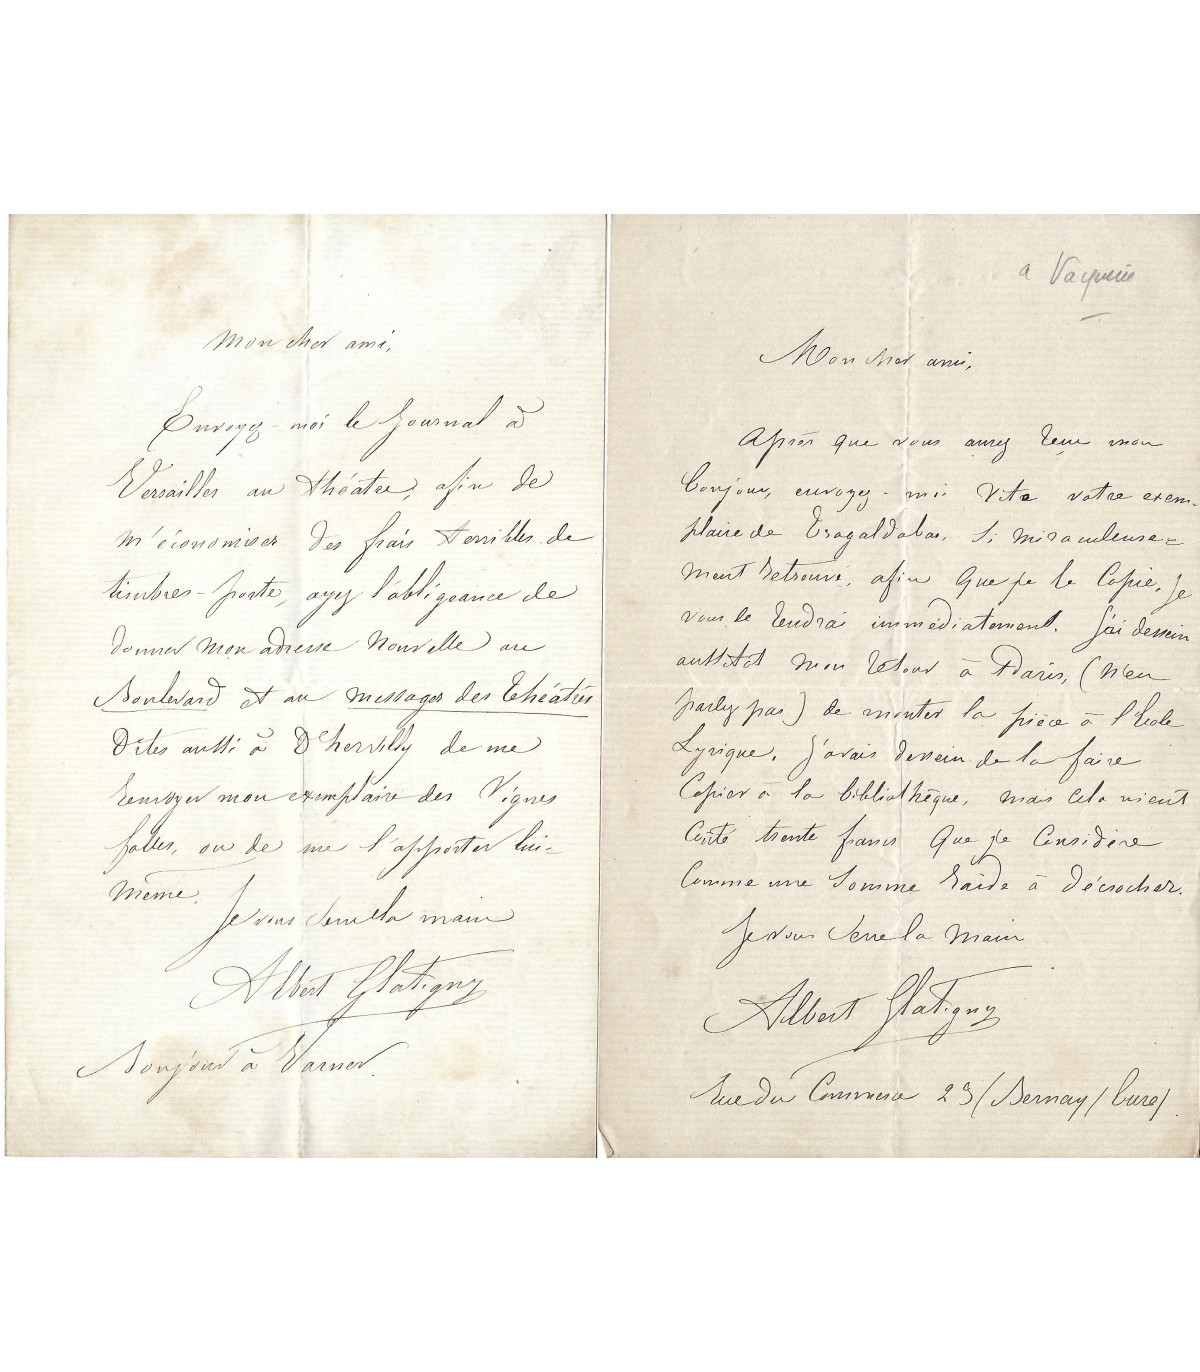 Mon cher ami,
Envoyez-moi le Journal à
Versailles au théâtre, afin de
m'économiser des frais terribles de
timbres-poste, ayez l'obligeance de
donner mon adresse nouvelle au
Boulevard et au messager des théâtres
Dites aussi à D'hervilly de me
renvoyer mon exemplaire des Vignes
folles, ou de me l'apporter lui-
même.
Je vous serre la main
Albert Glatigny
Bonjour à Varner.
a Vacquerie
Mon cher ami,
Après que vous aurez reçu mon
bonjour, envoyez-moi vite votre exem-
plaire de Tragaldabas, si miraculeuse=
ment retrouvé, afin que je le copie. Je
vous le rendrai immédiatement. J'ai dessein
aussitôt mon retour à Paris, (n'en
parlez pas) de monter la pièce à l'Ecole
Lyrique. J'avais dessein de la faire
copier à la bibliothèque, mais cela vient
coûté trente francs que je considère
comme une somme raide à décrocher.
Je vous serre la main
Albert Glatigny
Rue du Commerce 29 (Bernay / Eure)